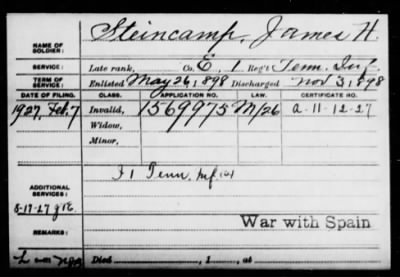 NAME OF SOLDIER: Steincamp, James H.
SERVICE: Late rank, Co. E, 1 Reg't Tenn. Inf.
TERM OF SERVICE: Enlisted May 26, 1898 Discharged Nov 3, 1898
DATE OF FILING. CLASS. APPLICATION NO. LAW. CERTIFICATE NO.
1927, Feb. 7 Invalid, 1569975 M/26 a-11-12-27
Widow,
Minor,
ADDITIONAL SERVICES: 1 Tenn. Inf
8-17-27
War with Spain
REMARKS:
Died , 1 , at